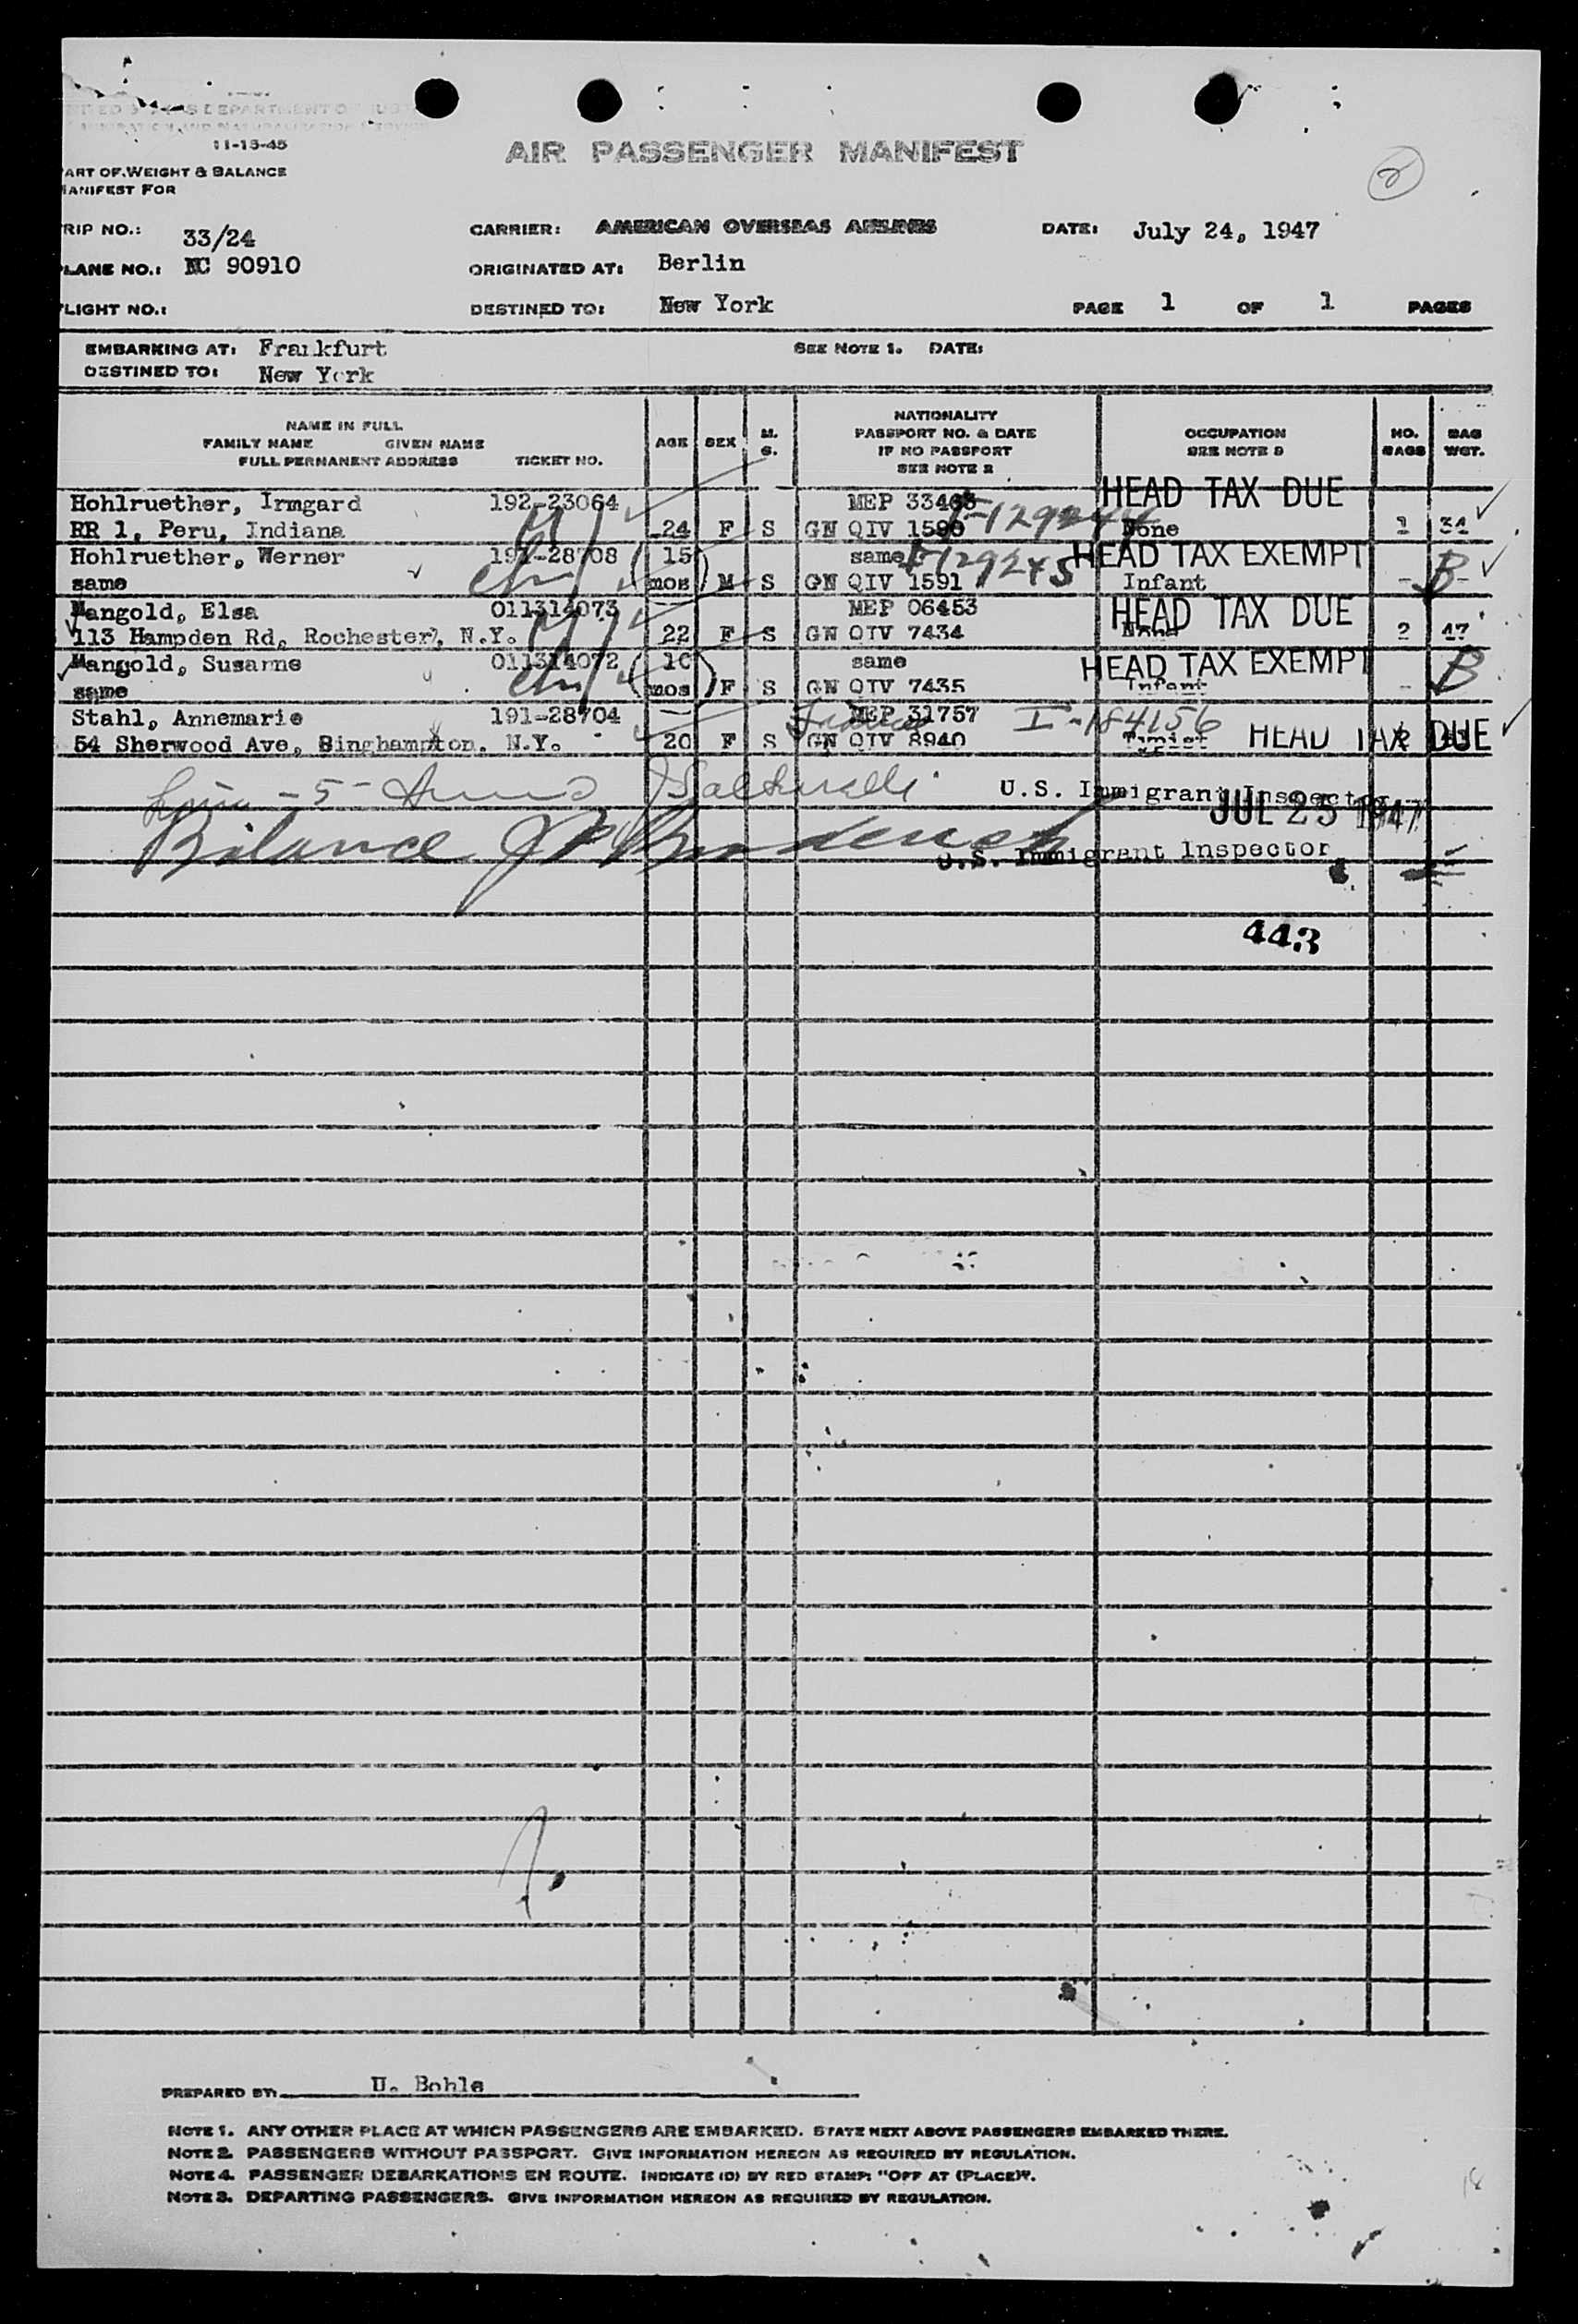 11-15-45
AIR PASSENGER MANIFEST
ART OF WEIGHT & BALANCE
ANIFEST FOR
2
RIP NO.: 33/24 CARRIER: AMERICAN OVERSEAS AIRLINES DATE: July 24, 1947
LANE NO.: NC 90910 ORIGINATED AT: Berlin
LIGHT NO.: DESTINED TO: New York PAGE 1 OF 1 PAGES
EMBARKING AT: Frankfurt SEE NOTE 1. DATE:
DESTINED TO: New York
NAME IN FULL
FAMILY NAME GIVEN NAME
FULL PERMANENT ADDRESS TICKET NO. AGE SEX M. S. NATIONALITY PASSPORT NO. & DATE IF NO PASSPORT SEE NOTE 2 OCCUPATION SEE NOTE 3 NO. BAGS BAG WGT.
Hohlruether, Irmgard 192-23064 MEP 33463 HEAD TAX DUE
RR 1, Peru, Indiana 24 F S GN QIV 1590 None
Hohlruether, Werner 191-28708 15 same I-129245 HEAD TAX EXEMPT B
same mos M S GN QIV 1591 Infant - -
Mangold, Elsa 011314073 MEP 06453 HEAD TAX DUE
113 Hampden Rd, Rochester, N.Y. 22 F S GN QIV 7434 None 2 47
Mangold, Susanne 011314072 10 same HEAD TAX EXEMPT B
same mos F S GN QIV 7435 Infant -
Stahl, Annemarie 191-28704 MEP 31757 I-184156
54 Sherwood Ave, Binghampton, N.Y. 20 F S GN QIV 8940 Typist HEAD TAX DUE
U.S. Immigrant Inspector
JUL 25 1947
Balance
U.S. Immigrant Inspector
443
PREPARED BY: U. Bohle
NOTE 1. ANY OTHER PLACE AT WHICH PASSENGERS ARE EMBARKED. STATE NEXT ABOVE PASSENGERS EMBARKED THERE.
NOTE 2. PASSENGERS WITHOUT PASSPORT. GIVE INFORMATION HEREON AS REQUIRED BY REGULATION.
NOTE 4. PASSENGER DEBARKATIONS EN ROUTE. INDICATE (D) BY RED STAMP: "OFF AT (PLACE)".
NOTE 3. DEPARTING PASSENGERS. GIVE INFORMATION HEREON AS REQUIRED BY REGULATION.